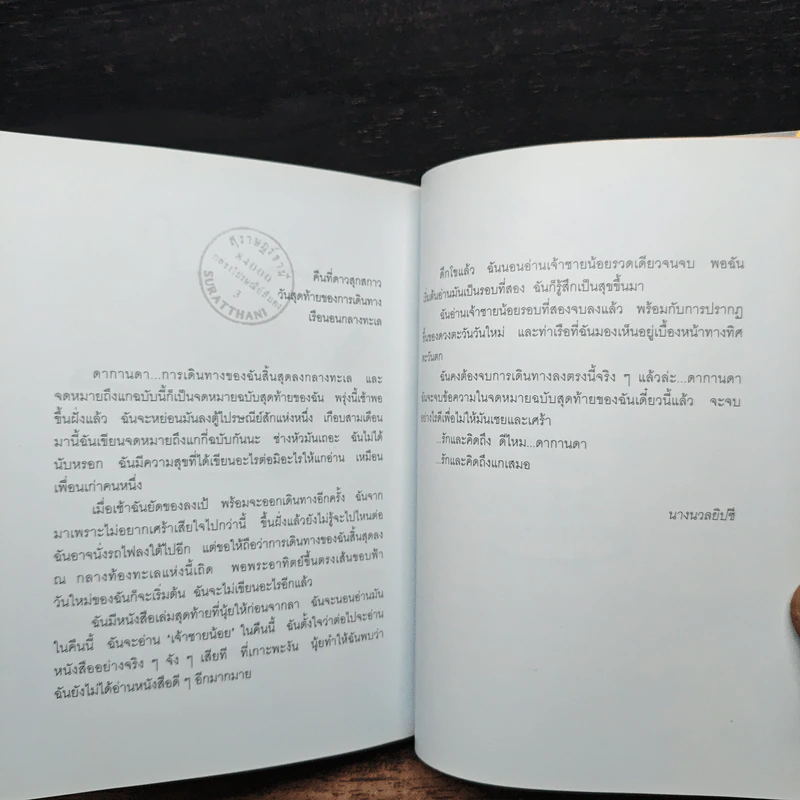 สุราษฎร์ธานี
84000
3
SURATTHANI
คืนที่ดาวสุกสกาว
วันสุดท้ายของการเดินทาง
เรือนอนกลางทะเล
ดากานดา...การเดินทางของฉันสิ้นสุดลงกลางทะเล และ
จดหมายถึงแกฉบับนี้ก็เป็นจดหมายฉบับสุดท้ายของฉัน พรุ่งนี้เช้าพอ
ขึ้นฝั่งแล้ว ฉันจะหย่อนมันลงตู้ไปรษณีย์สักแห่งหนึ่ง เกือบสามเดือน
มานี้ฉันเขียนจดหมายถึงแกกี่ฉบับกันนะ ช่างหัวมันเถอะ ฉันไม่ได้
นับหรอก ฉันมีความสุขที่ได้เขียนอะไรต่อมิอะไรให้แกอ่าน เหมือน
เพื่อนเก่าคนหนึ่ง
เมื่อเช้าฉันยัดของลงเป้ พร้อมจะออกเดินทางอีกครั้ง ฉันจาก
มาเพราะไม่อยากเศร้าเสียใจไปกว่านี้ ขึ้นฝั่งแล้วยังไม่รู้จะไปไหนต่อ
ฉันอาจนั่งรถไฟลงใต้ไปอีก แต่ขอให้ถือว่าการเดินทางของฉันสิ้นสุดลง
ณ กลางท้องทะเลแห่งนี้เถิด พอพระอาทิตย์ขึ้นตรงเส้นขอบฟ้า
วันใหม่ของฉันก็จะเริ่มต้น ฉันจะไม่เขียนอะไรอีกแล้ว
ฉันมีหนังสือเล่มสุดท้ายที่นุ้ยให้ก่อนจากลา ฉันจะนอนอ่านมัน
ในคืนนี้ ฉันจะอ่าน 'เจ้าชายน้อย' ในคืนนี้ ฉันตั้งใจว่าต่อไปจะอ่าน
หนังสืออย่างจริง ๆ จัง ๆ เสียที ที่เกาะพะงัน นุ้ยทำให้ฉันพบว่า
ฉันยังไม่ได้อ่านหนังสือดี ๆ อีกมากมาย
ดึกโขแล้ว ฉันนอนอ่านเจ้าชายน้อยรวดเดียวจนจบ พอฉัน
เริ่มต้นอ่านมันเป็นรอบที่สอง ฉันก็รู้สึกเป็นสุขขึ้นมา
ฉันอ่านเจ้าชายน้อยรอบที่สองจบลงแล้ว พร้อมกับการปรากฏ
ขึ้นของดวงตะวันวันใหม่ และท่าเรือที่ฉันมองเห็นอยู่เบื้องหน้าทางทิศ
ตะวันตก
ฉันคงต้องจบการเดินทางลงตรงนี้จริง ๆ แล้วล่ะ...ดากานดา
ฉันจะจบข้อความในจดหมายฉบับสุดท้ายของฉันเดี๋ยวนี้แล้ว จะจบ
อย่างไรดีเพื่อไม่ให้มันเชยและเศร้า
...รักและคิดถึง ดีไหม...ดากานดา
...รักและคิดถึงแกเสมอ
นางนวลยิปซี